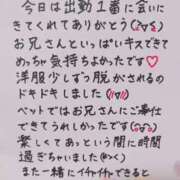 今日は出勤1番に会い
きてくれてありがとう(≧▽≦)
お兄さんといっぱいキスできて
めっちゃ気持ちよかったです♡
洋服少しずつ脱がされるの
ドキドキしました(//∇//)
ベットではお兄さんにご奉仕
できてうれしかったです(≧◡≦)
楽しくてあっという間に時間
過ぎちゃいました(>﹏<)
また一緒にイチャイチャできると